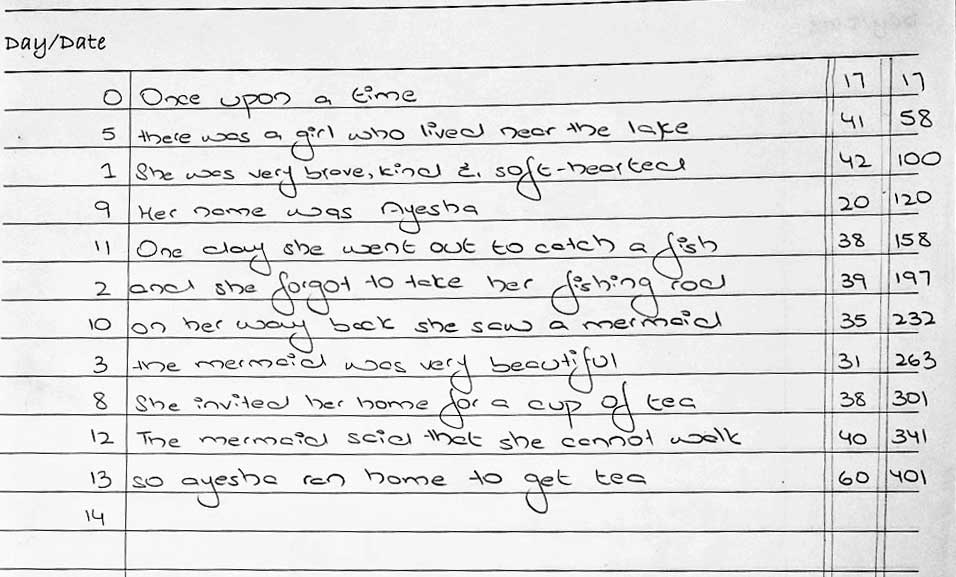 Day/Date
0 Once upon a time 17 17
5 there was a girl who lived near the lake 41 58
1 She was very brave, kind & soft-hearted 42 100
9 Her name was Ayesha 20 120
11 One day she went out to catch a fish 38 158
2 and she forgot to take her fishing rod 39 197
10 on her way back she saw a mermaid 35 232
3 the mermaid was very beautiful 31 263
8 She invited her home for a cup of tea 38 301
12 The mermaid said that she cannot walk 40 341
13 so ayesha ran home to get tea 60 401
14